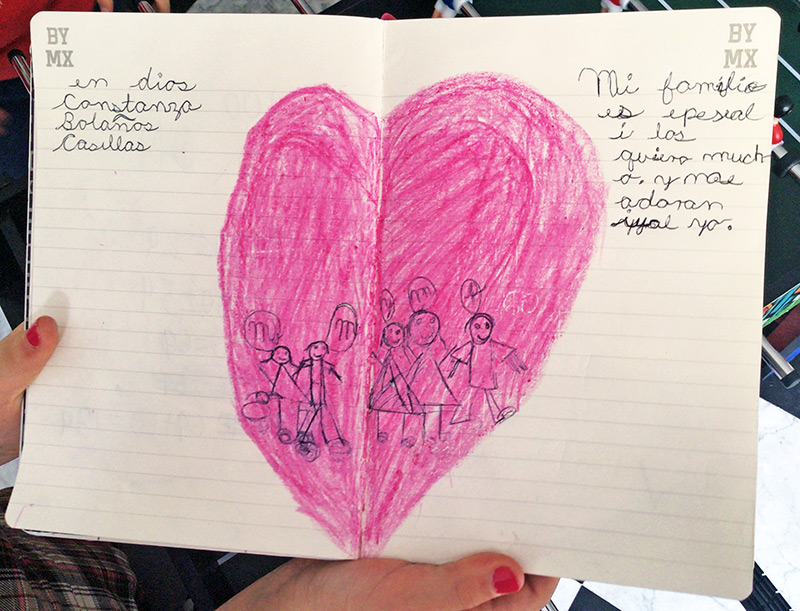 BY
MX
en dios
Constanza
Bolaños
Casillas
BY
MX
Mi familia
es epesial
i los
quiero much
o. y me
adoran
iyual yo.
m
m
m